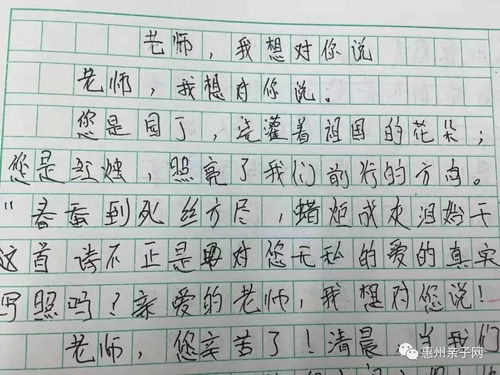 老师，我想对你说
老师，我想对你说。
您是园丁，浇灌着祖国的花朵；
您是红烛，照亮了我们前行的方向。
"春蚕到死丝方尽，蜡炬成灰泪始干
这首诗不正是对您无私的爱的真实
写照吗？亲爱的老师，我想对您说！
老师，您辛苦了！清晨 当我们
惠州亲子网